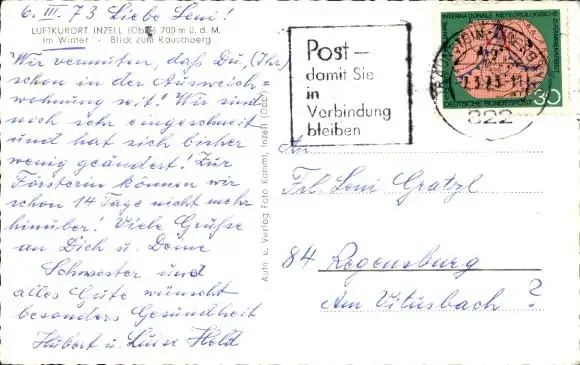 6. III. 73 Liebe Leni!
LUFTKURORT INZELL (Obb.) 700 m ü. d. M.
Im Winter - Blick zum Rauschberg
Wir vermuten, daß Du, (Ihr)
schon in der Ausweich
wohnung seit! Wir sind
noch sehr eingeschneit
und hat sich bisher
wenig geändert! Zur
Försterin können wir
schon 14 Tage nicht mehr
hinüber! Viele Grüße
an Dich u. Deine
Schwester und
alles Gute wünscht
besonders Gesundheit
Hubert u. Luise Held
Aufn. u. Verlag Foto Kamml, Inzell (Obb)
Post -
damit Sie
in
Verbindung
bleiben
INTERNATIONALE METEOROLOGISCHE
ZUSAMMENARBEIT
DEUTSCHE BUNDESPOST
30
822
An
Frl. Leni Gratzl
84 Regensburg
Am Vitusbach ?